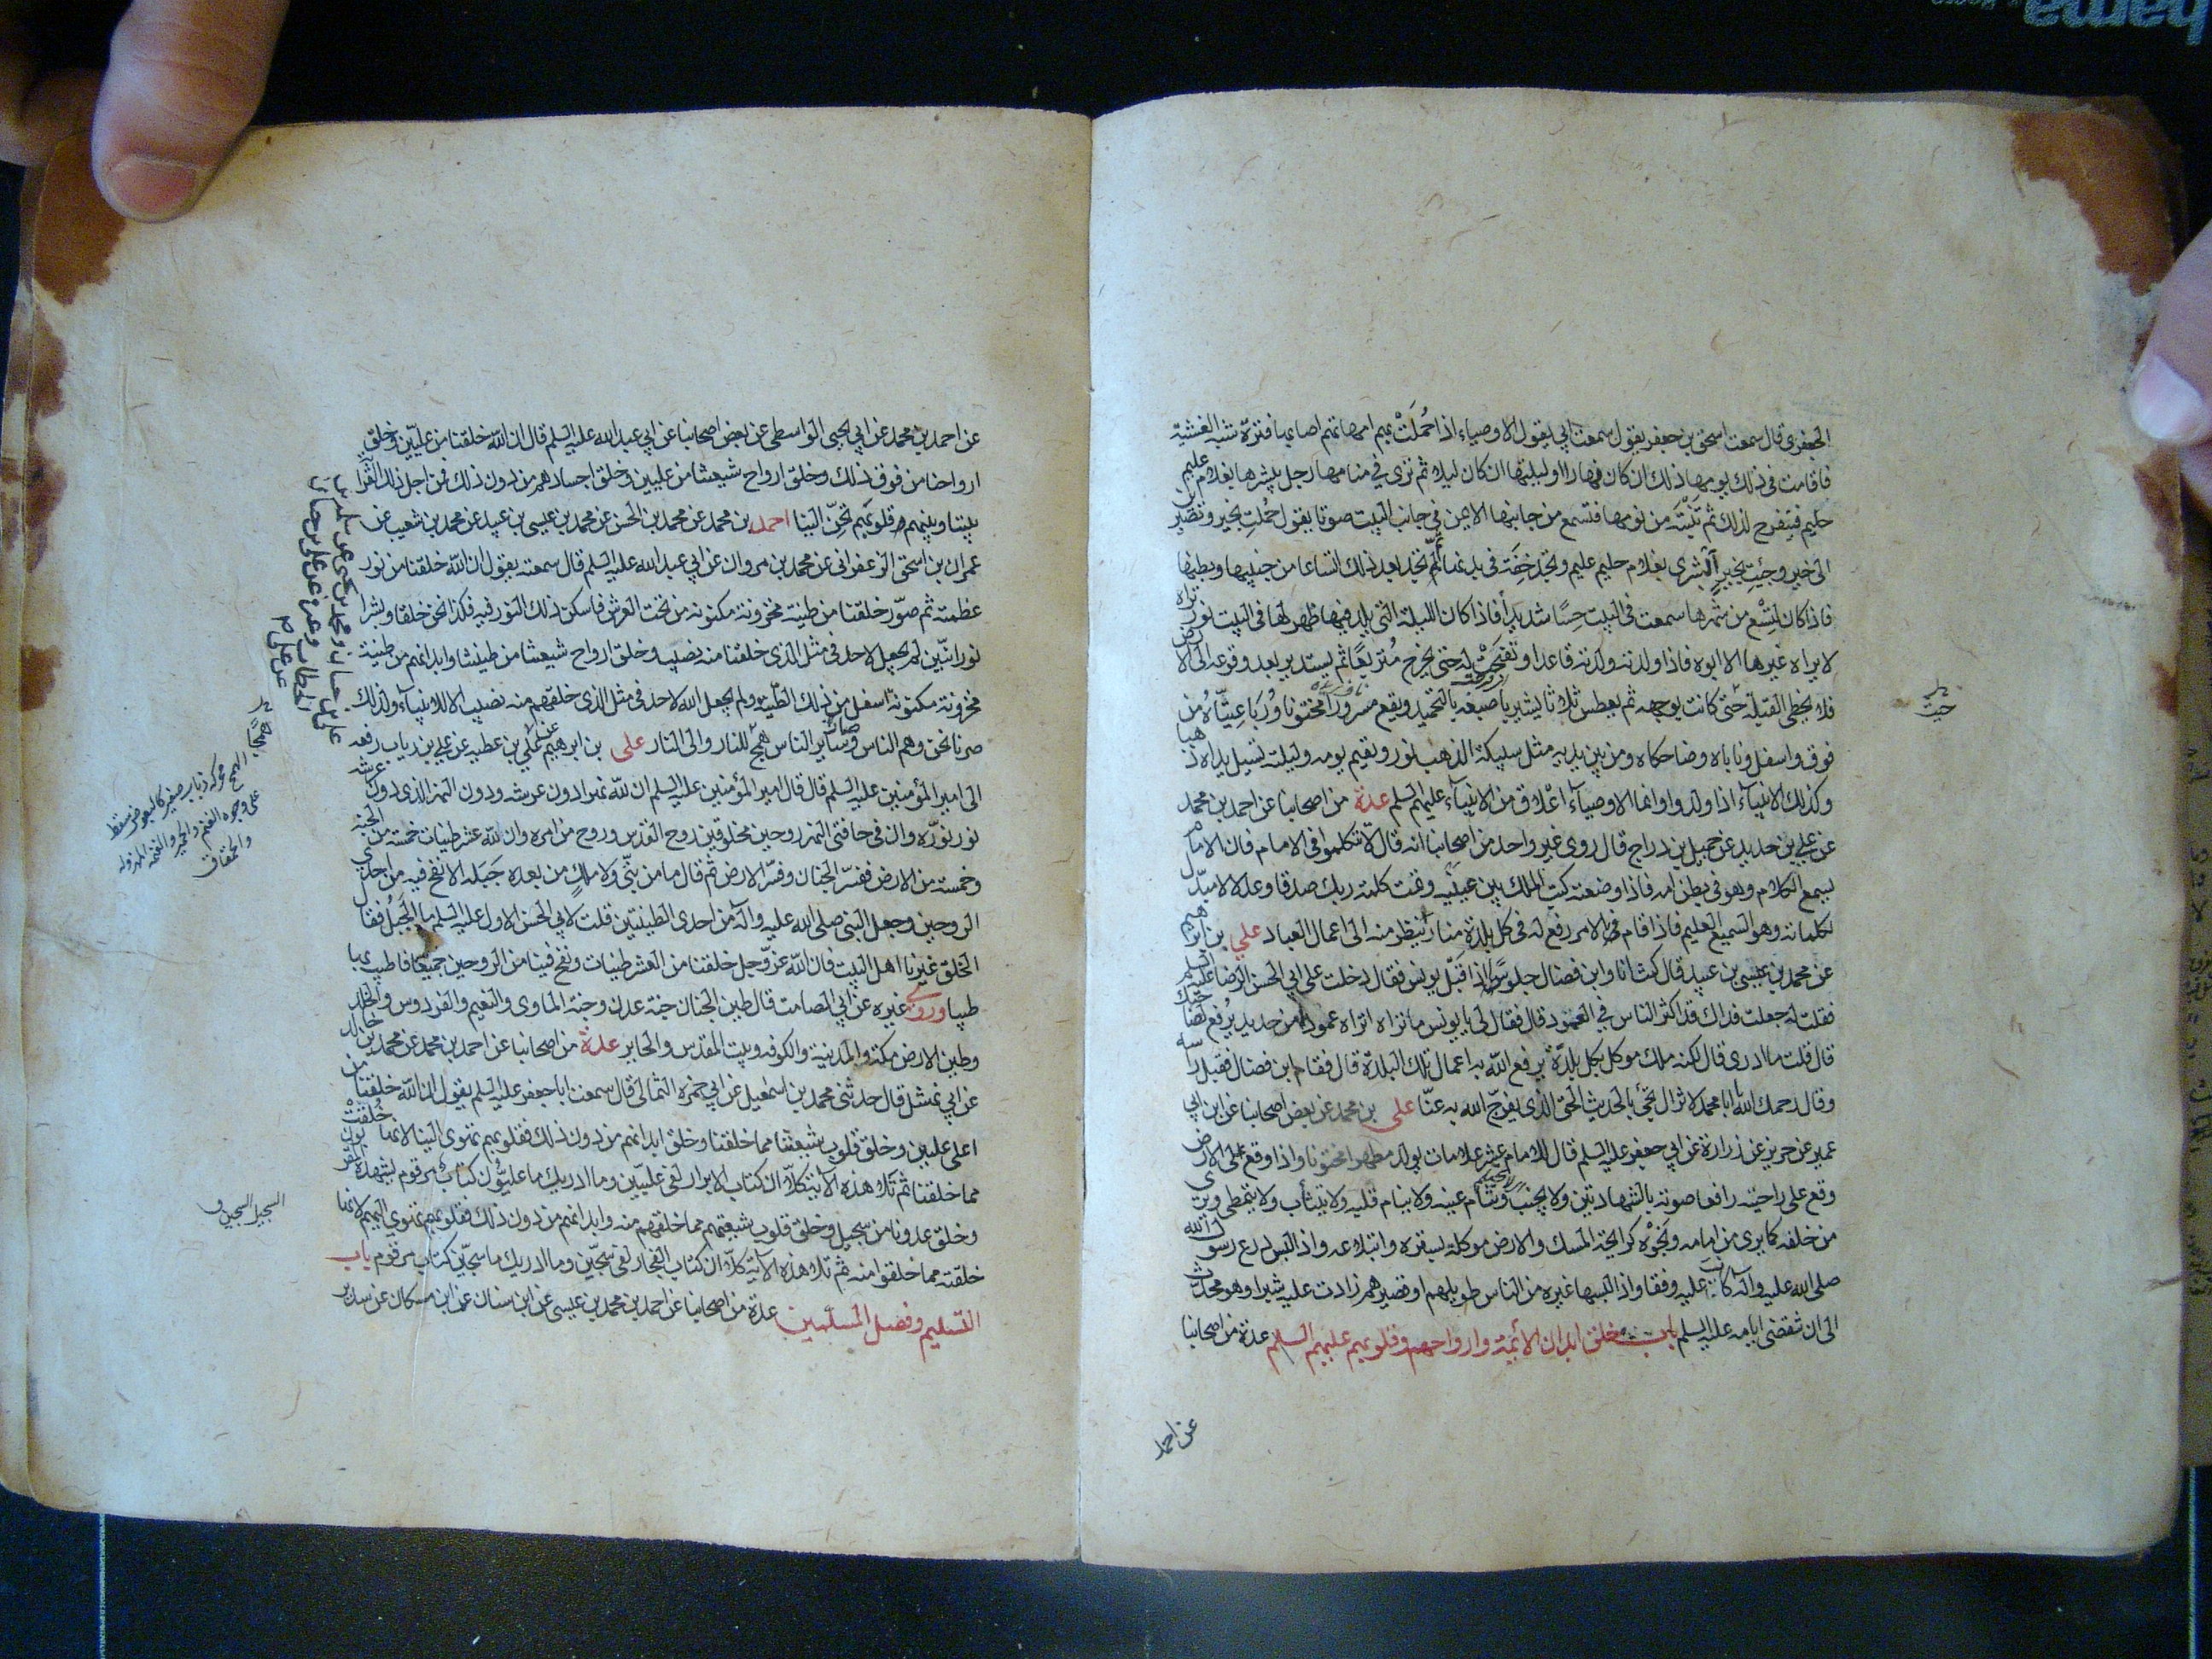 الجعفري قال سمعت اسحق بن جعفر يقول سمعت ابي يقول الاوصياء اذا حملت بهم امهاتهم اصابها فترة شبه الغشية
فاقامت في ذلك يومها ذلك ان كان نهارا او ليلتها ان كان ليلا ثم ترى في منامها رجلا يبشرها بغلام عليم
حليم فتفرح لذلك ثم تنتبه من نومها فتسمع من جانبها الايمن في جانب البيت صوتا يقول حملت بخير وتصيرين
الى خير وجئت بخير ابشري بغلام حليم عليم وتجد خفة في بدنها ثم لم تجد بعد ذلك اتساعا من جنبيها وبطنها
فاذا كان لتسع من شهرها سمعت في البيت حسا شديدا فاذا كان الليلة التي يلد فيها ظهر لها في البيت نور تراه
لا يراه غيرها الا ابوه فاذا ولدته ولدته قاعدا وتفتحت له حتى يخرج متربعا ثم يستدير بعد وقوعه الى الارض
فلا يخطى القبلة حتى كانت بوجهه ثم يعطس ثلاثا يشير باصبعه بالتحميد ويقع مسرورا مختونا ورباعيتاه من
فوق واسفل وناباه وضاحكاه ومن بين يديه مثل سبيكة الذهب نور ويقيم يومه وليلته تسيل يداه ذهبا
وكذلك الانبياء اذا ولدوا وانما الاوصياء اعلاق من الانبياء عليهم السلم عدة من اصحابنا عن احمد بن محمد
عن علي بن حديد عن جميل بن دراج قال روى غير واحد من اصحابنا انه قال لا تتكلموا في الامام فان الامام
يسمع الكلام وهو في بطن امه فاذا وضعته كتب الملك بين عينيه وتمت كلمة ربك صدقا وعدلا لا مبدل
لكلماته وهو السميع العليم فاذا قام بالامر رفع له في كل بلدة منار ينظر منه الى اعمال العباد علي بن ابراهيم
عن محمد بن عيسى بن عبيد قال كنت انا وابن فضال جلوسا اذ اقبل يونس فقال دخلت على ابي الحسن الرضا عليه السلم
فقلت له جعلت فداك قد اكثر الناس في العمود قال فقال لي يا يونس ما تراه اتراه عمودا من حديد يرفع لصاحبك
قال قلت ما ادري قال لكنه ملك موكل بكل بلدة يرفع الله به اعمال تلك البلدة قال فقام ابن فضال فقبل راسه
وقال رحمك الله يا ابا محمد لا تزال تجي بالحديث الحق الذي يفرج الله به عنا علي بن محمد عن بعض اصحابنا عن ابن ابي
عمير عن حريز عن زرارة عن ابي جعفر عليه السلم قال للامام عشر علامات يولد مطهرا مختونا واذا وقع على الارض
وقع على راحته رافعا صوته بالشهادتين ولا يجنب وتنام عينه ولا ينام قلبه ولا يتثأب ولا يتمطى ويرى
من خلفه كما يرى من امامه ونجوه كرائحة المسك والارض موكلة بستره وابتلاعه واذا لبس درع رسول الله
صلى الله عليه واله كانت عليه وفقا واذا لبسها غيره من الناس طويلهم او قصيرهم زادت عليه شبرا وهو محدث
الى ان تنقضي ايامه عليه السلم باب خلق ابدان الأئمة وارواحهم وقلوبهم عليهم السلم عدة من اصحابنا
عن احمد
عن احمد بن محمد عن ابي يحيى الواسطي عن بعض اصحابنا عن ابي عبد الله عليه السلم قال ان الله خلقنا من عليين وخلق
ارواحنا من فوق ذلك وخلق ارواح شيعتنا من عليين وخلق اجسادهم من دون ذلك فمن اجل ذلك القرابة
بيننا وبينهم وقلوبهم تحن الينا احمد بن محمد عن محمد بن الحسن عن محمد بن عيسى بن عبيد عن محمد بن شعيب عن
عمران بن اسحق الزعفراني عن محمد بن مروان عن ابي عبد الله عليه السلم قال سمعته يقول ان الله خلقنا من نور
عظمته ثم صور خلقنا من طينة مخزونة مكنونه من تحت العرش فاسكن ذلك النور فيه فكنا نحن خلقا وبشرا
نورانيين لم يجعل لاحد في مثل الذي خلقنا منه نصيب وخلق ارواح شيعتنا من طينتنا وابدانهم من طينة
مخزونة مكنونة اسفل من ذلك الطينة ولم يجعل الله لاحد في مثل الذي خلقهم منه نصيب الا للانبياء ولذلك
صرنا نحن وهم الناس وصار سائر الناس همج للنار والى النار علي بن ابرهيم عن علي بن عطيه عن علي بن رياب رفعه
الى امير المؤمنين عليه السلم قال قال امير المؤمنين عليه السلم ان لله نهرا دون عرشه ودون النهر الذي دون عرشه
نور نوره وان في حافتي النهر روحين مخلوقين روح القدس وروح من امره وان لله عشر طينات خمسة من الجنة
وخمسة من الارض ففسر الجنان وفسر الارض ثم قال ما من نبي ولا ملك من بعده جبله الا نفخ فيه من احدى
الروحين وجعل النبي صلى الله عليه واله من احدى الطينتين قلت لابي الحسن الاول عليه السلم ما الجبل فقال
الخلق غيرنا اهل البيت فان الله عز وجل خلقنا من العشر طينات ونفخ فينا من الروحين جميعا فاطيب بها
طيبا وروى غيره عن ابي الصامت قال طين الجنان جنة عدن وجنة الماوى والنعيم والفردوس والخلد
وطين الارض مكة والمدينة والكوفه وبيت المقدس والحاير عدة من اصحابنا عن احمد بن محمد عن محمد بن خالد
عن ابي نهشل قال حدثني محمد بن اسمعيل عن ابي حمزه الثمالي قال سمعت ابا جعفر عليه السلم يقول ان الله خلقنا من
اعلى عليين وخلق قلوب شيعتنا مما خلقنا وخلق ابدانهم من دون ذلك فقلوبهم تهوى الينا لانها خلقت
مما خلقنا ثم تلا هذه الآية كلا ان كتاب الابرار لفي عليين وما ادريك ما عليون كتاب مرقوم يشهده المقربون
وخلق عدونا من سجيل وخلق قلوب شيعتهم مما خلقهم منه وابدانهم من دون ذلك فقلوبهم تهوي اليهم لانها
خلقته مما خلقوا منه ثم تلا هذه الآية كلا ان كتاب الفجار لفي سجين وما ادريك ما سجين كتاب مرقوم باب
التسليم وفضل المسلمين عدة من اصحابنا عن احمد بن محمد بن عيسى عن ابن سنان عن ابن مسكان عن سدير
همجا
الهمج محركه ذباب صغير كالبعوض يسقط
على وجوه الغنم والحمير والغنمه المهزوله
والحمقاق
السجيل السجين ق